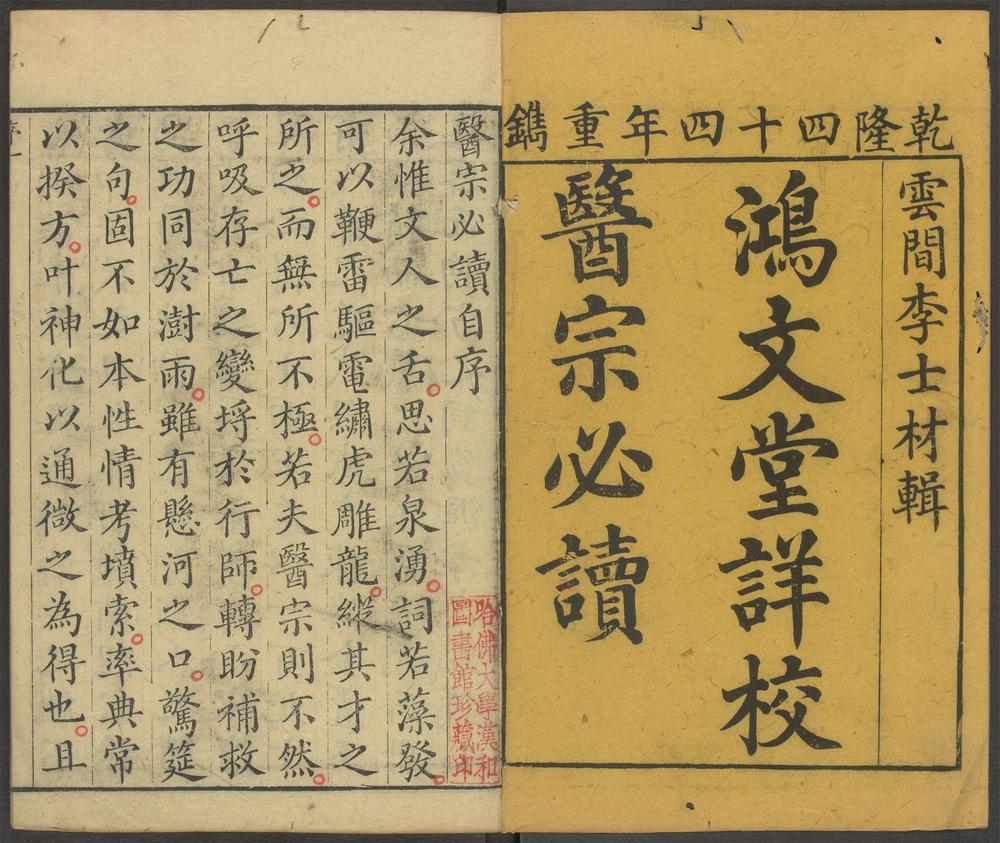 乾隆四十四年重鐫
雲間李士材輯
鴻文堂詳校
醫宗必讀
醫宗必讀自序
余惟文人之舌。思若泉湧。詞若藻發。
可以鞭雷驅電繡虎雕龍。縱其才之
所之。而無所不極。若夫醫宗則不然。
呼吸存亡之變埒於行師。轉盼補救
之功同於澍雨。雖有懸河之口。驚筵
之句。固不如本性情考墳索。率典常
以揆方。叶神化以通微之為得也。且
哈佛大學漢和
圖書館珍藏印
序一